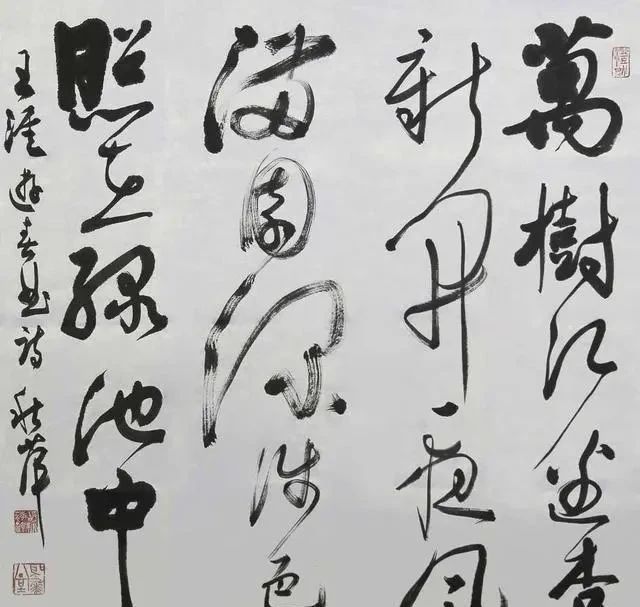 萬樹江邊杏
新開一夜風
滿園深淺色
照在綠池中
王涯遊春曲詩